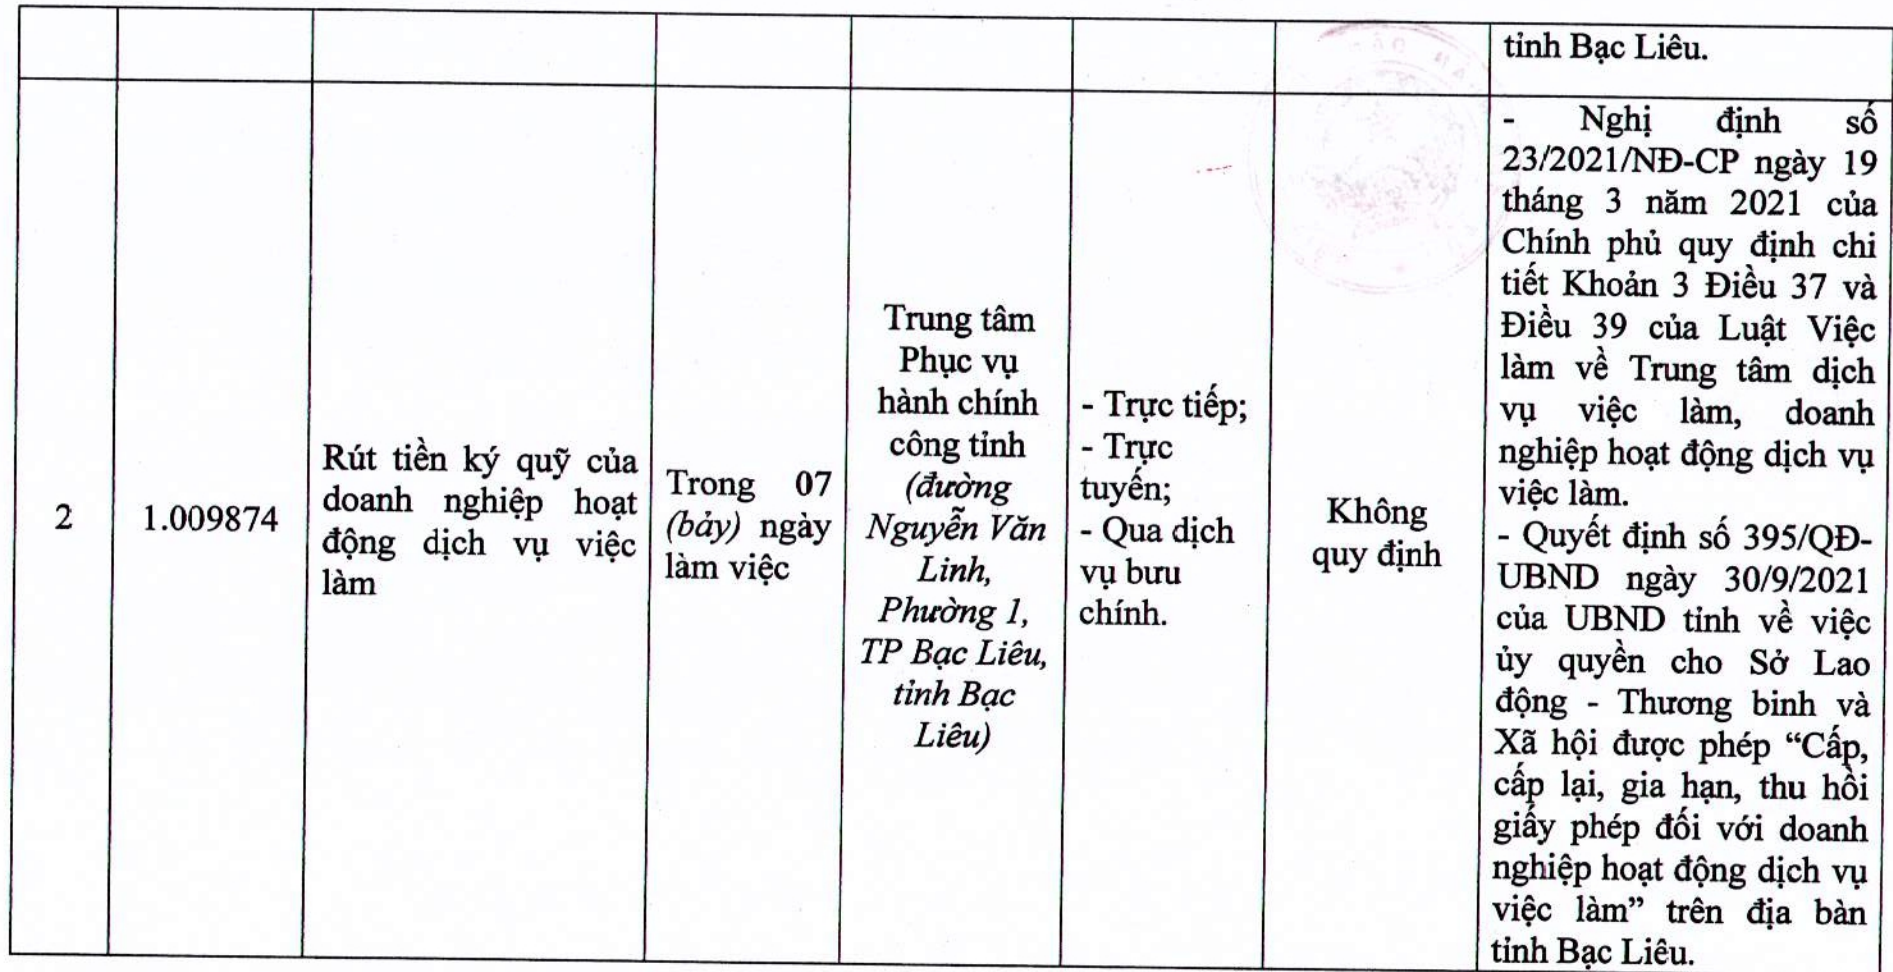 tỉnh Bạc Liêu.
2
1.009874
Rút tiền ký quỹ của
doanh nghiệp hoạt
động dịch vụ việc
làm
Trong 07
(bảy) ngày
làm việc
Trung tâm
Phục vụ
hành chính
công tỉnh
(đường
Nguyễn Văn
Linh,
Phường 1,
TP Bạc Liêu,
tỉnh Bạc
Liêu)
- Trực tiếp;
- Trực
tuyến;
- Qua dịch
vụ bưu
chính.
Không
quy định
- Nghị định số
23/2021/NĐ-CP ngày 19
tháng 3 năm 2021 của
Chính phủ quy định chi
tiết Khoản 3 Điều 37 và
Điều 39 của Luật Việc
làm về Trung tâm dịch
vụ việc làm, doanh
nghiệp hoạt động dịch vụ
việc làm.
- Quyết định số 395/QĐ-
UBND ngày 30/9/2021
của UBND tỉnh về việc
ủy quyền cho Sở Lao
động - Thương binh và
Xã hội được phép “Cấp,
cấp lại, gia hạn, thu hồi
giấy phép đối với doanh
nghiệp hoạt động dịch vụ
việc làm” trên địa bàn
tỉnh Bạc Liêu.